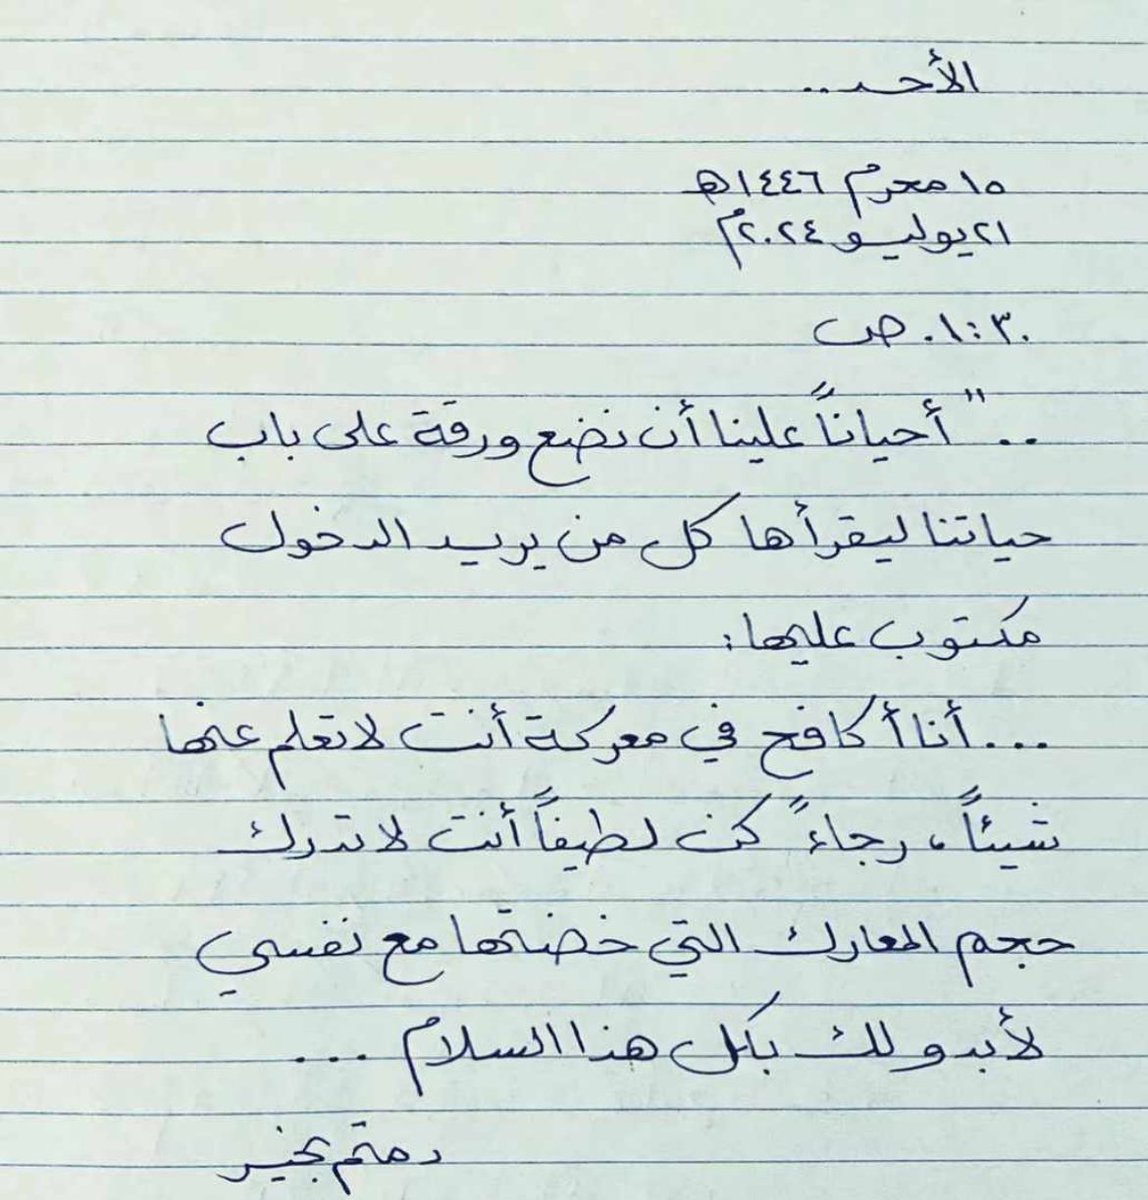 الأحد..
١٥ محرم ١٤٤٦ه
٢١ يوليو ٢٠٢٤م
٠١:٣٠ ص
.. "أحياناً علينا أن نضع ورقة على باب
حياتنا ليقرأها كل من يريد الدخول
مكتوب عليها:
...أنا أكافح في معركة أنت لا تعلم عنها
شيئاً، رجاءً كن لطيفاً أنت لا تدرك
حجم المعارك التي خضتها مع نفسي
لأبدو لك بكل هذا السلام ...
دمتم بخير